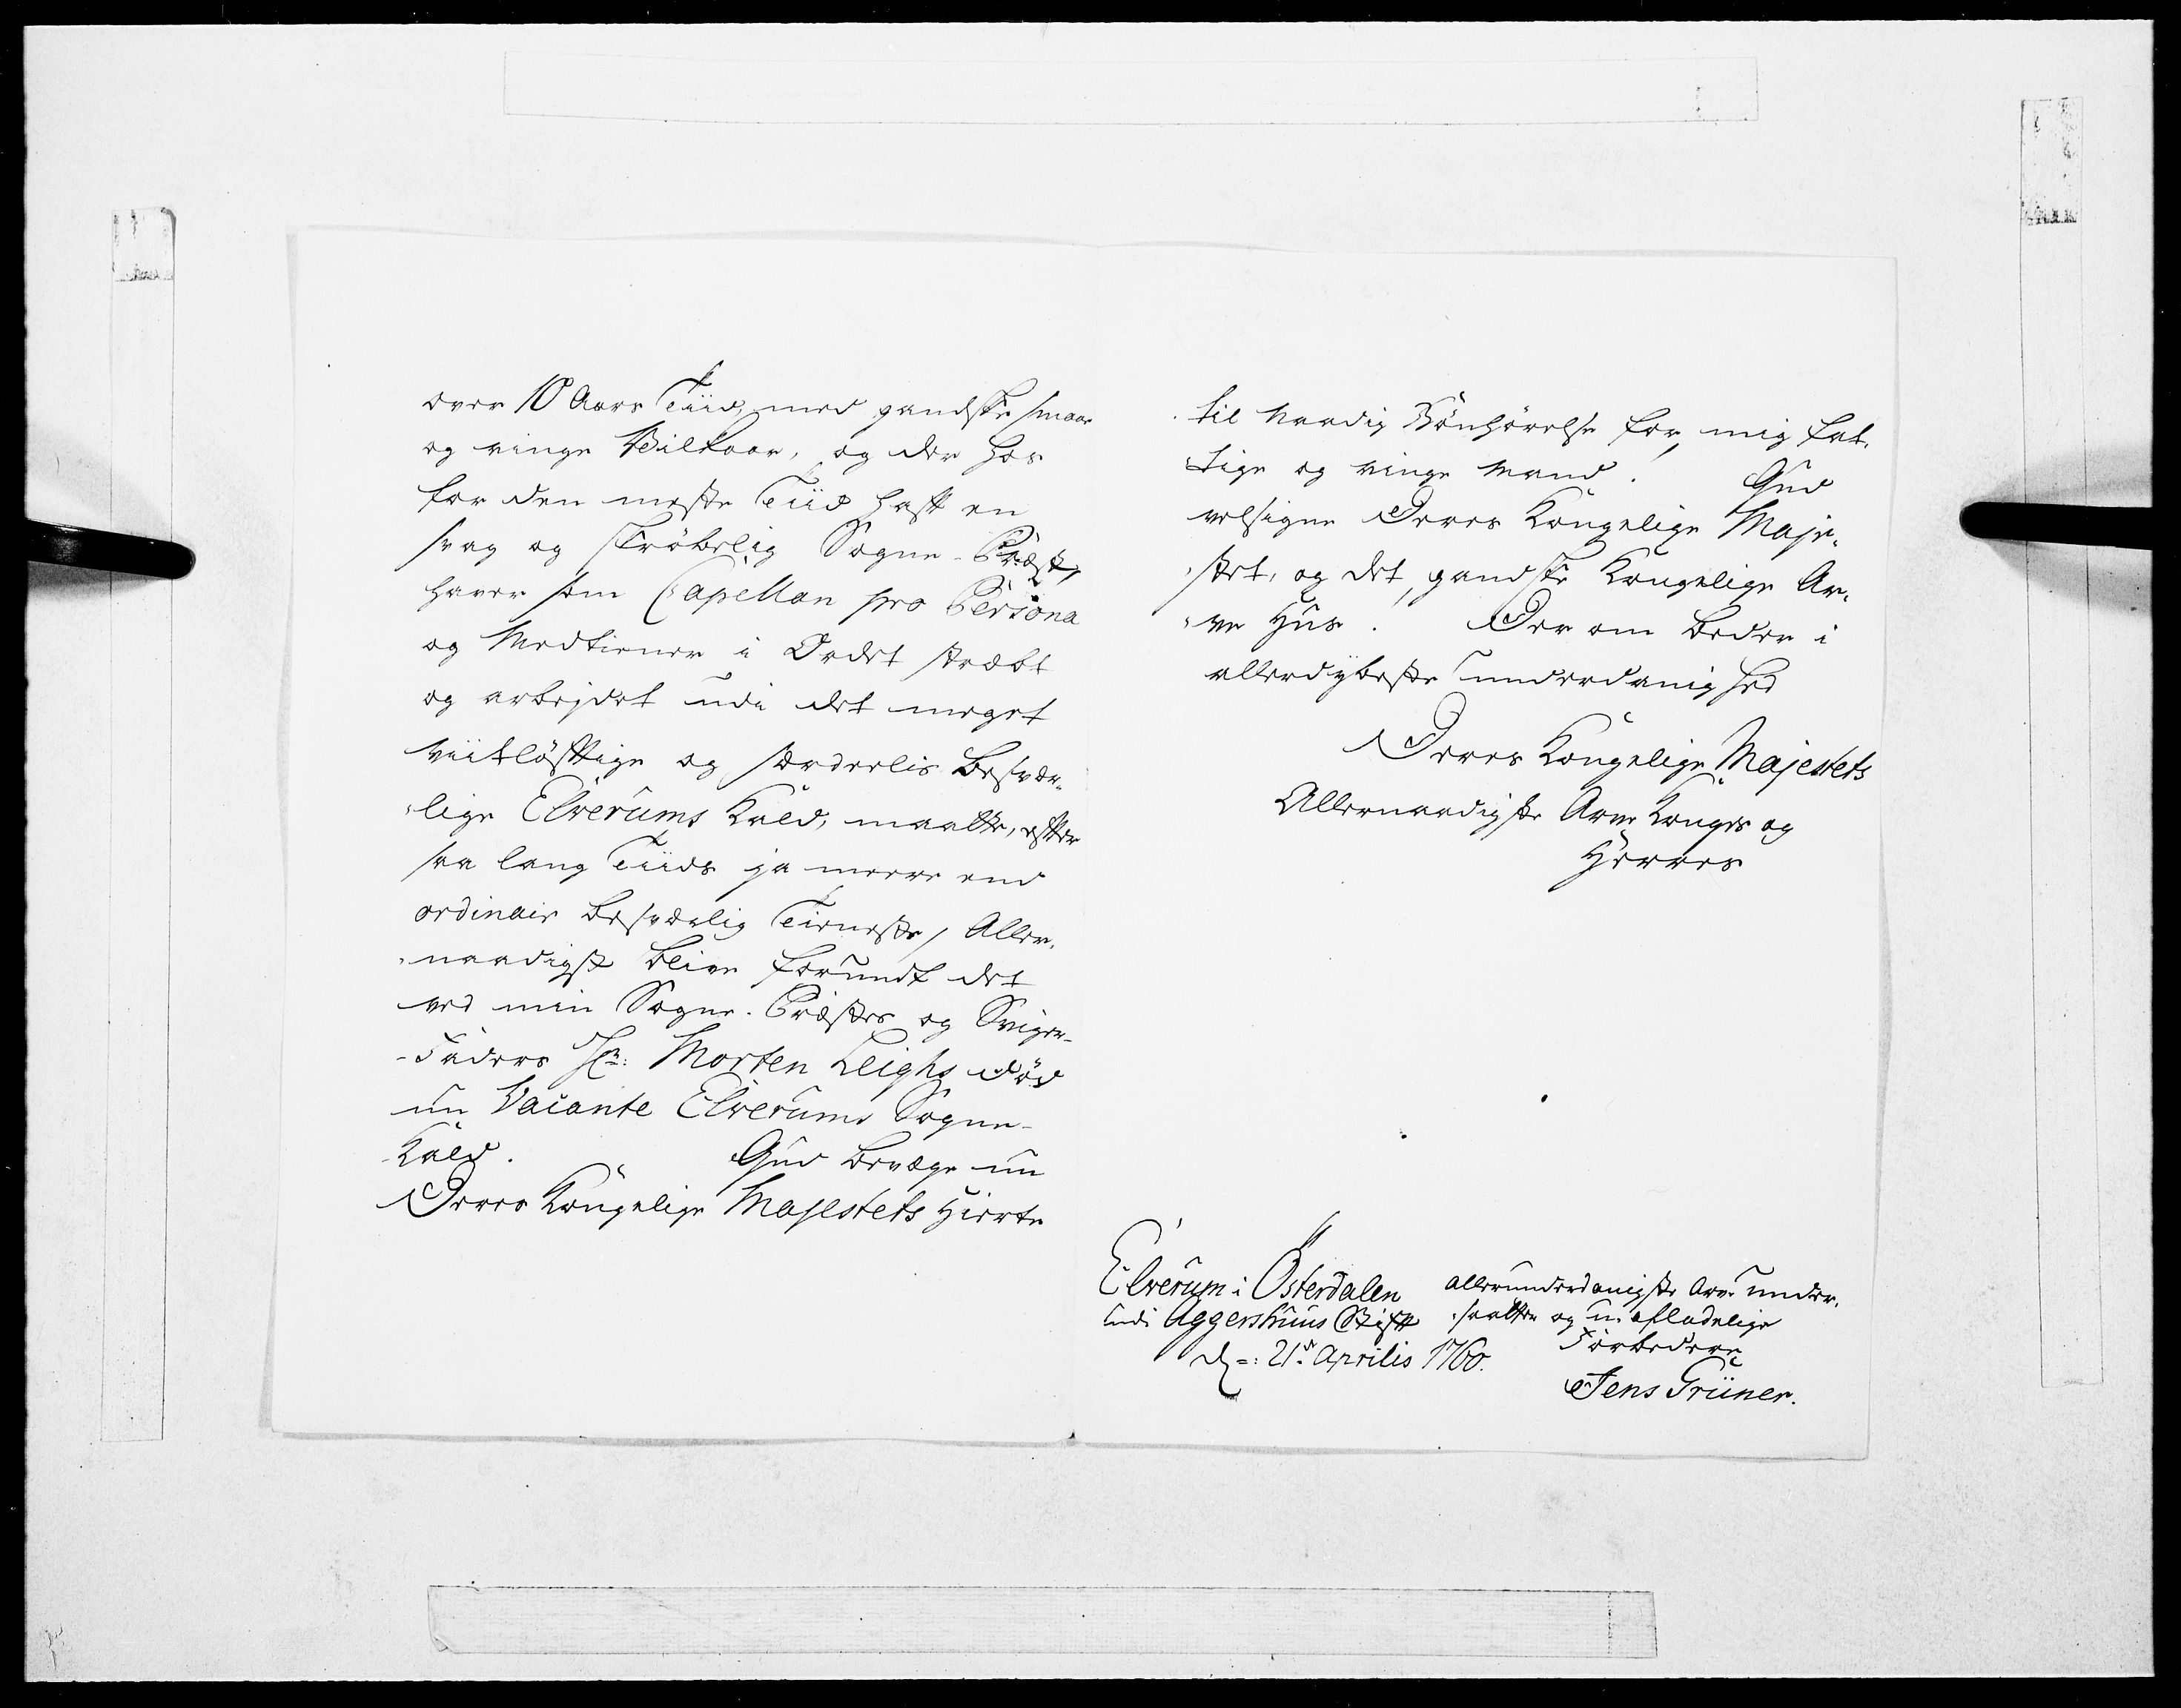 over 10 Aars Tiid, med gandske smaae
og ringe Vilkaar, og der hos
for den meste Tiid haft en
svag og skröbelig Sogne-Præst,
haver som Capellan pro Persona
og Medtiener i Ordet stræbt
og arbejdet udi det meget
viitlöfttige og særdeelis besvær-
-lige Elverums Kald, maatte, effter
saa lang Tiids ja meere end
ordinair besværlig Tieneste, Aller-
-naadigst blive forundt det
ved min Sogne-Præstes og Sviger-
-Faders Hr: Morten Leighs Död
nu Vacante Elverums Sogne-
-Kald. Gud bevæge nu
Deres Kongelige Majestets Hierte
til naadig Bönhörelse for mig fat-
-tige og ringe Mand! Gud
velsigne Deres Kongelige Maje-
-stet, og det gandske Kongelige Ar-
-ve Huus! Der om beder i
allerdybeste underdanighed
Deres Kongelige Majestets
Allernaadigste Arve Konges og
Herres
Elverum i Österdalen
udi Aggershuus Stift
d=: 21de Aprilis 1760.
allerunderdanigste Arve under-
-saatter og u-afladelige
Forbedere
Jens Grüner.